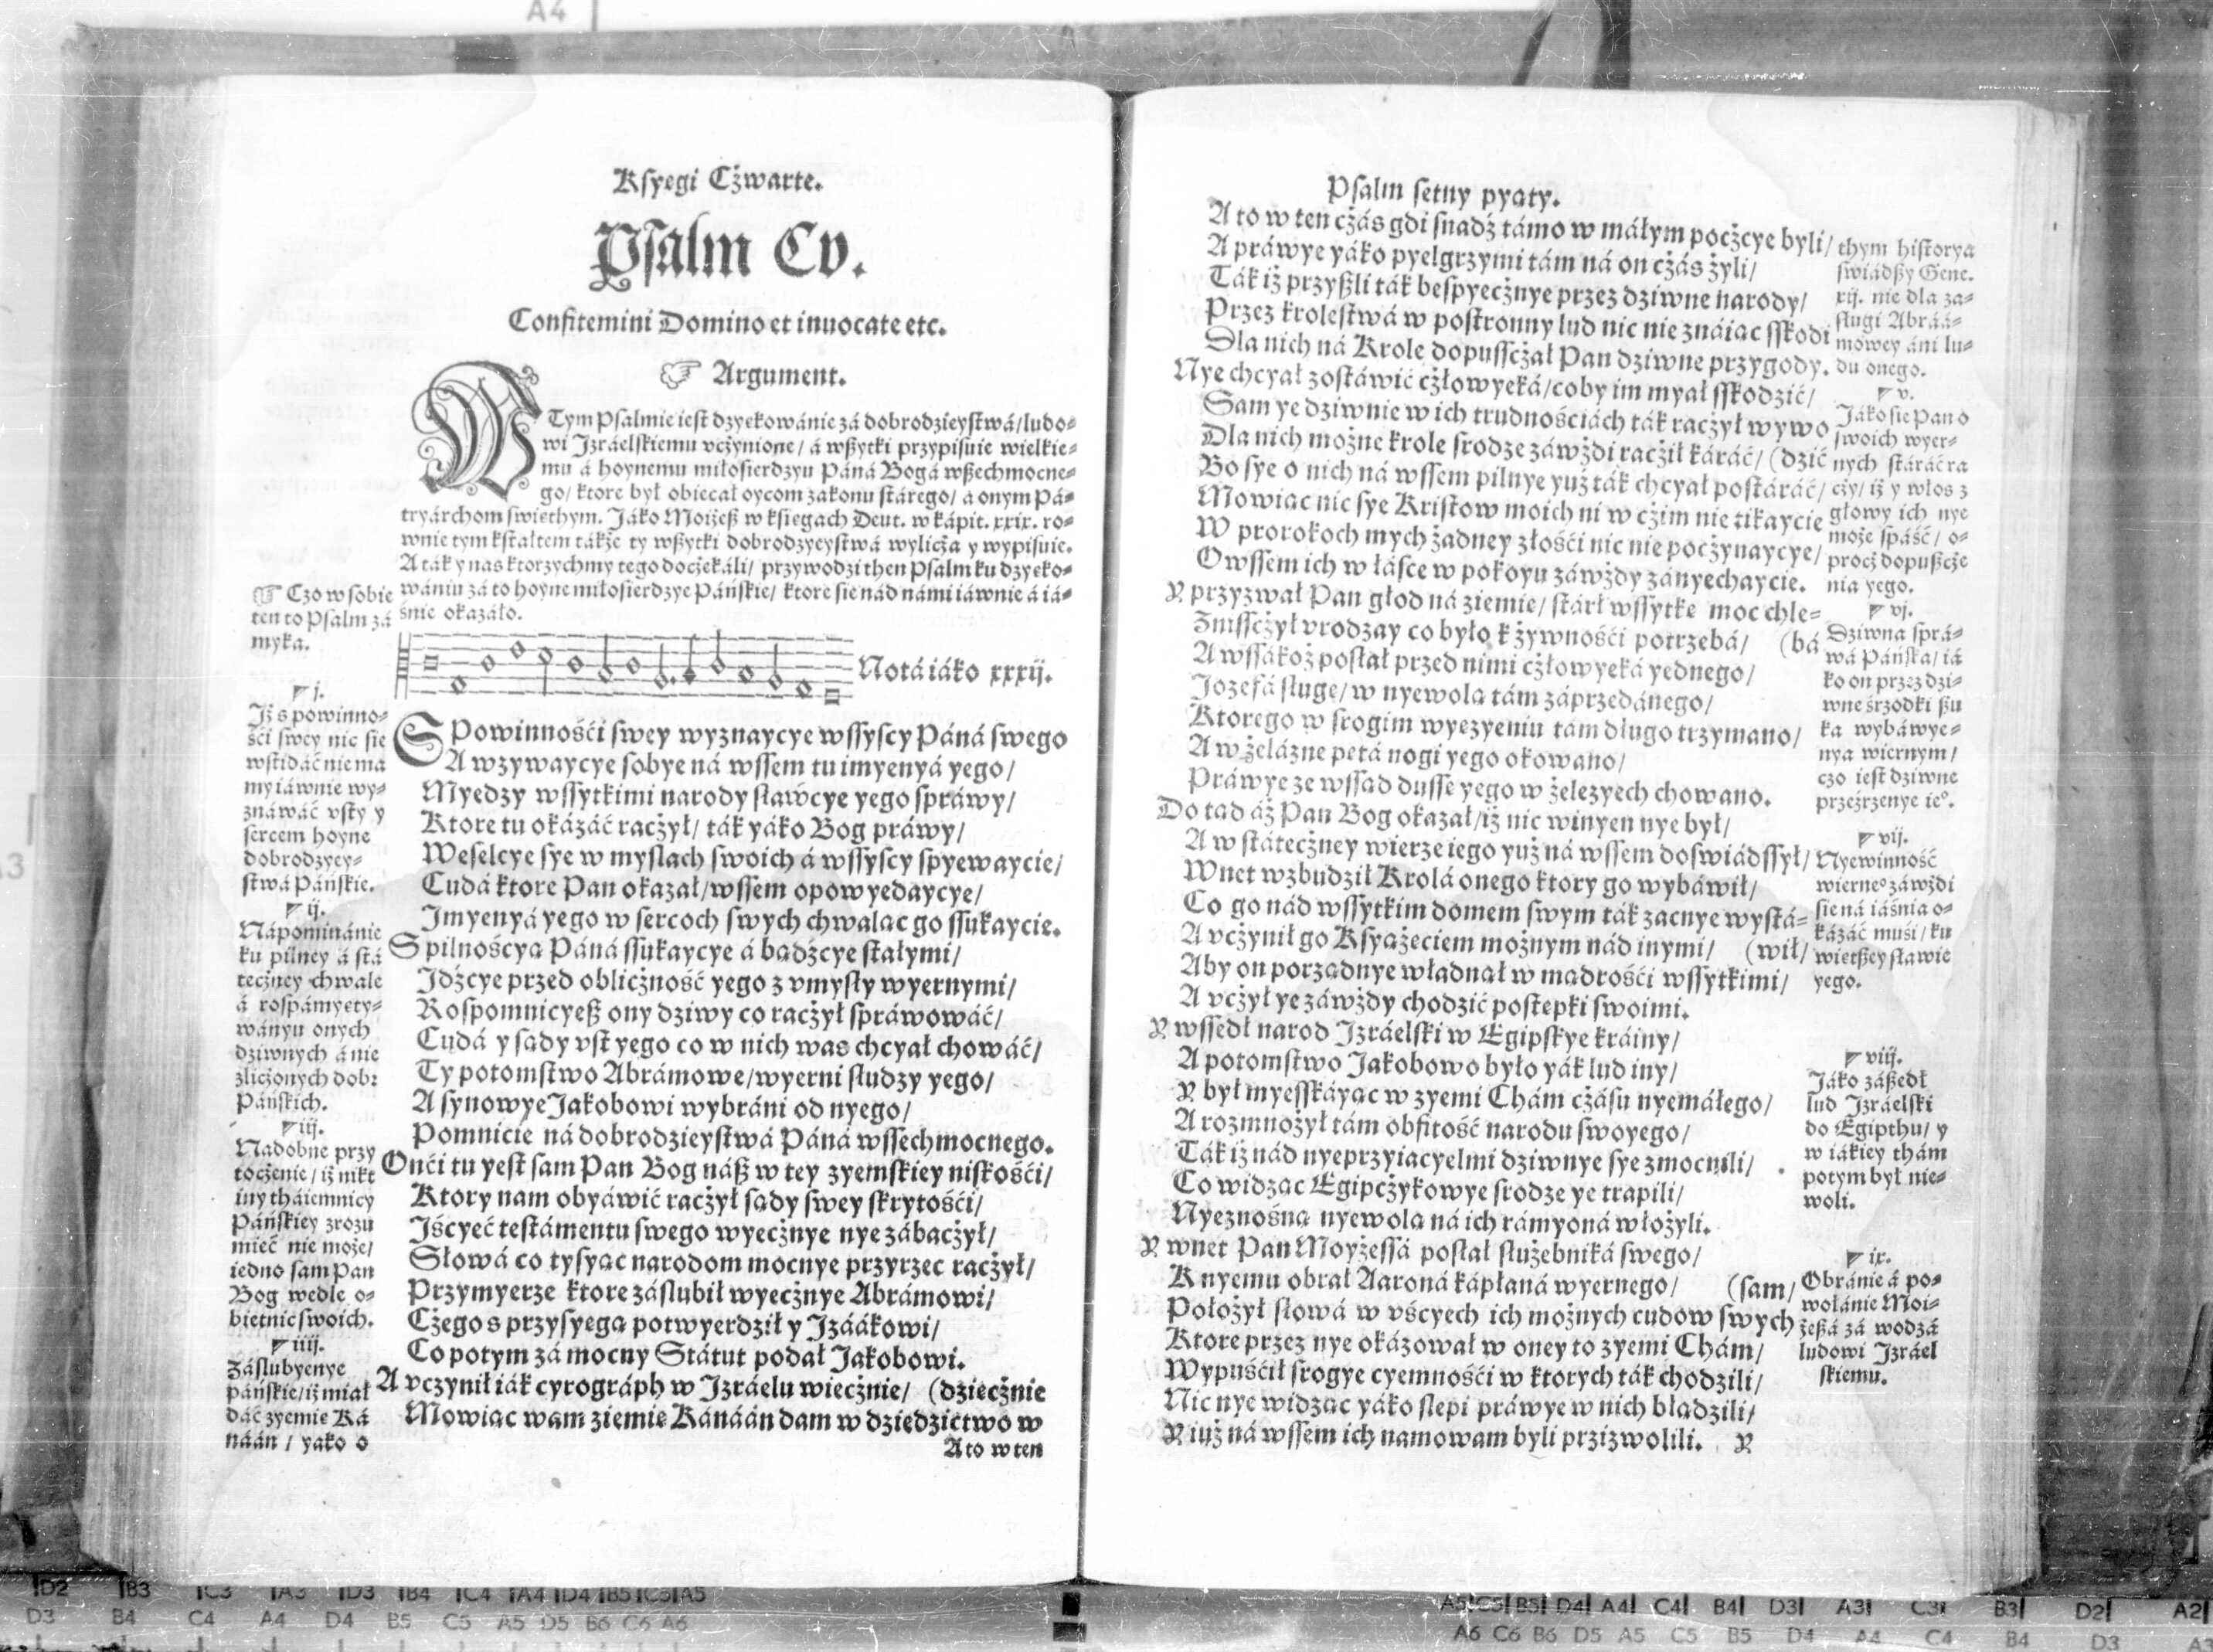 Ksyegi Cżwarte.
Psalm Cv.
Confitemini Domino et inuocate etc.
☞ Argument.
W Tym Psalmie iest dzyekowánie zá dobrodzieystwá/ ludo⸗
wi Izráelskiemu vcżynione/ á wßytki przypisuie wielkie⸗
mu á hoynemu miłosierdzyu Páná Bogá wßechmocne⸗
go/ ktore był obiecał oycom zakonu stárego/ a onym Pá⸗
tryárchom swiethym. Jáko Moiżeß w ksiegach Deut. w kápit. xxix. ro⸗
wnie tym kstałtem tákże ty wßytki dobrodzyeystwá wylicża y wypisuie.
A ták y nas ktorzychmy tego docżekáli/ przywodzi then Psalm ku dzyeko⸗
wániu zá to hoyne miłosierdzye Páńskie/ ktore sie nád námi iáwnie á iá⸗
śnie okazáło.
☞ Czo w sobie
ten to Psalm zá
myka.
Notá iáko xxxij.
j.
Iż s powinno⸗
śći swey nic sie
wstidáć nie ma
my iáwnie wy⸗
znáwáć vsty y
sercem hoyne
dobrodzyey⸗
stwá Páńskie.
ij.
Nápominánie
ku pilney á stá
tecżney chwale
á rospámyety⸗
wányu onych
dziwnych á nie
zlicżonych dobr
Páńskich.
iij.
Nadobne przy
tocżenie/ iż nikt
iny tháiemnicy
Páńskiey zrozu
mieć nie może/
iedno sam Pan
Bog wedle o⸗
bietnic swoich.
iiij.
Záslubyenye
páńskie/ iż miał
dáć zyemie Ká
náán / yako o
S Powinnośći swey wyznaycye wssyscy Páná swego
A wzywaycye sobye ná wssem tu imyenyá yego/
Myedzy wssytkimi narody sławcye yego spráwy/
Ktore tu okázáć racżył/ ták yáko Bog práwy/
Weselcye sye w myslach swoich á wssyscy spyewaycie/
Cudá ktore Pan okazał/ wssem opowyedaycye/
Imyenyá yego w sercoch swych chwaląc go ssukaycie.
S pilnoścyą Páná ssukaycye á bądźcye stałymi/
Idźcye przed oblicżność yego z vmysły wyernymi/
Rospomnicyeß ony dziwy co racżył spráwowáć/
Cudá y sądy vst yego co w nich was chcyał chowáć/
Ty potomstwo Abrámowe/ wyerni słudzy yego/
A synowye Jakobowi wybráni od nyego/
Pomnicie ná dobrodzieystwá Páná wssechmocnego.
Onći tu yest sam Pan Bog náß w tey zyemskiey niskośći/
Ktory nam obyáwić racżył sądy swey skrytośći/
Iścyeć testámentu swego wyecżnye nye zábacżył/
Słowá co tysyąc narodom mocnye przyrzec racżył/
Przymyerze ktore záslubił wyecżnye Abrámowi/
Cżego s przysyęgą potwyerdził y Izáákowi/
Co potym zá mocny Státut podał Jakobowi.
A vczynił iák cyrográph w Izráelu wiecżnie/ (dziecżnie
Mowiąc wam ziemie Kánáán dam w dziedzictwo w
A to w ten
Psalm setny pyąty.
A to w ten cżás gdi snadź támo w máłym pocżcye byli/
A práwye yáko pyelgrzymi tám ná on cżás żyli/
Ták iż przyßli ták bespyecżnye przez dziwne narody/
Przez krolestwá w postronny lud nic nie znáiąc sskodi
Dla nich ná Krole dopusscżał Pan dziwne przygody.
Nye chcyał zostáwić cżłowyeká/ coby im myał sskodzić/
Sam ye dziwnie w ich trudnościách ták racżył wywo
Dla nich możne krole srodze záwżdi racżił káráć/ (dzić
Bo sye o nich ná wssem pilnye yuż ták chcyał postáráć/
Mowiąc nic sye Kristow moich ni w cżim nie tikaycie
W prorokoch mych żadney złośći nic nie pocżynaycye/
Owssem ich w łásce w pokoyu záwżdy zányechaycie.
Y przyzwał Pan głod ná ziemie/ stárł wssytkę moc chle⸗
Znisscżył vrodzay co było k żywnośći potrzebá/ (bá
A wssákoż posłał przed nimi cżłowyeká yednego/
Jozefá sługę/ w nyewolą tám záprzedánego/
Ktorego w srogim wyęzyeniu tám długo trzymano/
A w żelázne pętá nogi yego okowano/
Práwye ze wssąd dusse yego w żelezyech chowano.
Do tąd áż Pan Bog okazał/ iż nic winyen nye był/
A w státecżney wierze iego yuż ná wssem doswiádssył/
Wnet wzbudził Krolá onego ktory go wybáwił/
Co go nád wssytkim domem swym ták zacnye wystá⸗
A vcżynił go Ksyążeciem możnym nád inymi/ (wił/
Aby on porządnye władnął w mądrośći wssytkimi/
A vcżył ye záwżdy chodzić postepki swoimi.
Y wssedł narod Izráelski w Egipskye kráiny/
A potomstwo Jakobowo było yák lud iny/
Y był myesskáyąc w zyemi Chám cżásu nyemáłego/
A rozmnożył tám obfitość narodu swoyego/
Ták iż nád nyeprzyiacyelmi dziwnye sye zmocnili/
Co widząc Egipcżykowye srodze ye trapili/
Nyeznośną nyewolą ná ich rámyoná włożyli.
Y wnet Pan Moyżessá posłał służebniká swego/
K nyemu obrał Aaroná kápłaná wyernego/ (sam/
Położył słowá w vścyech ich możnych cudow swych
Ktore przez nye okázował w oney to zyemi Chám/
Wypuśćił srogye cyemnośći w ktorych ták chodzili/
Nic nye widząc yáko slepi práwye w nich błądzili/
Y iuż ná wssem ich namowam byli przizwolili. Y
thym historya
swiádßy Gene.
xij. nie dla za⸗
sługi Abráá⸗
mowey áni lu⸗
du onego.
v.
Jáko sie Pan o
swoich wyer⸗
nych stáráć ra
cży/ iż y włos z
głowy ich nye
może spáść/ o⸗
procż dopußcże
nia yego.
vj.
Dziwna sprá⸗
wá Páńska/ iá
ko on przez dzi⸗
wne śrzodki ßu
ka wybáwye⸗
nya wiernym/
czo iest dziwne
przeźrzenye ieº.
vij.
Nyewinność
wierneº záwżdi
sie ná iáśnia o⸗
kázáć muśi/ ku
wietßey sławie
yego.
viij.
Jáko záßedł
lud Izráelski
do Egipthu/ y
w iákiey thám
potym był nie⸗
woli.
ix.
Obránie á po⸗
wołánie Moi⸗
żeßá zá wodzá
ludowi Izráel
skiemu.